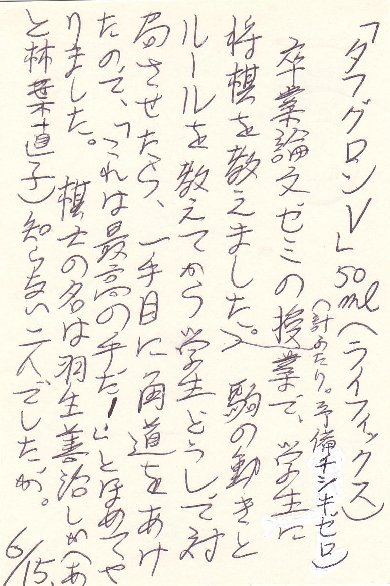 「タフグロンV」50ml（ライフィックス）
（計ふたり。予備チシキゼロ）
卒業論文ゼミの授業で、学生に
将棋を教えました。駒の動きと
ルールを教えてから学生どうしで対
局させたら、一手目に角道をあけ
たので、「これは最高の手だ！」とほめてや
りました。棋士の名は羽生善治しか（あ
と林葉直子）知らない二人でしたが。
6/15.